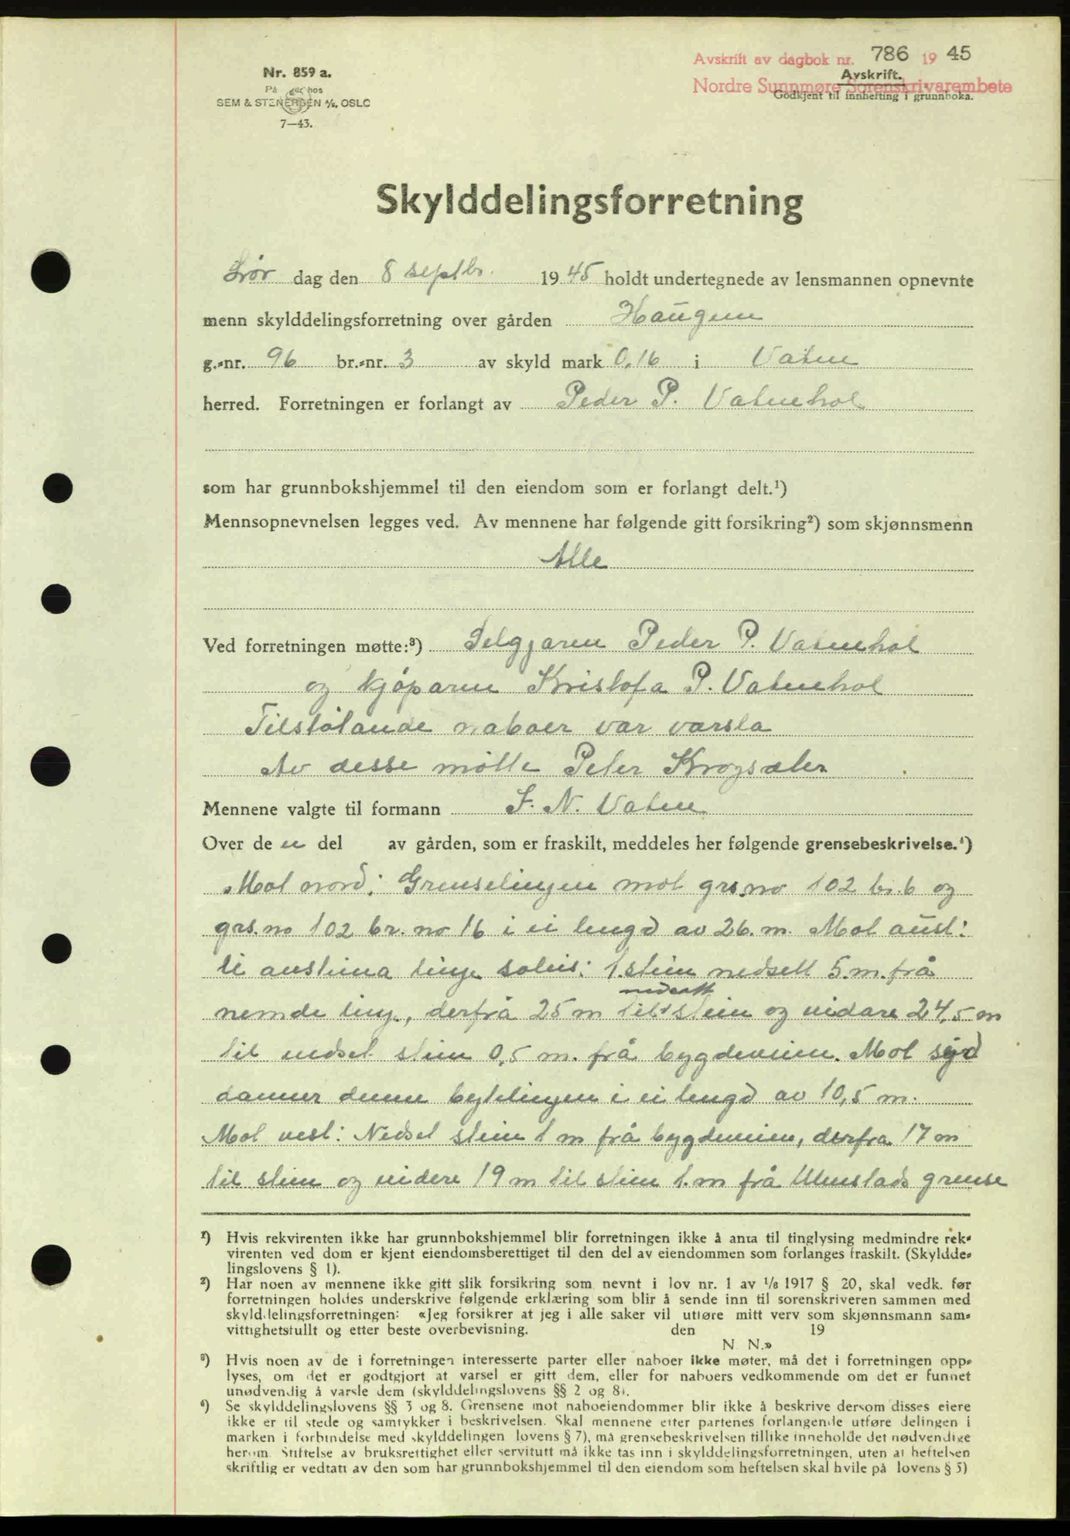 Avskrift av dagbok nr. 786 1945
Nordre Sunnmøre Sorenskrivarembete
Avskrift.
Godkjent til innhefting i grunnboka.
Nr. 859 a.
På hos
SEM & STENERSEN A/S, OSLO
7—43.
Skylddelingsforretning
Lør dag den 8 septbr. 1945 holdt undertegnede av lensmannen opnevnte
menn skylddelingsforretning over gården Haugen
g.-nr. 96 br.-nr. 3 av skyld mark 0,16 i Vatne
herred. Forretningen er forlangt av Peder P. Vatnehol
som har grunnbokshjemmel til den eiendom som er forlangt delt.¹)
Mennsopnevnelsen legges ved. Av mennene har følgende gitt forsikring²) som skjønnsmenn
Alle
Ved forretningen møtte:³) Selgjaren Peder P. Vatnehol
og kjøparen Kristofa P. Vatnehol
Tilstøtande naboer var varsla
Av desse møtte Peter Krogsæter
Mennene valgte til formann J. N. Vatne
Over de n del av gården, som er fraskilt, meddeles her følgende grensebeskrivelse.⁴)
Mot nord: Grenselinjen mot grs.no 102 br. 6 og
grs.no 102 br. no 16 i ei lengd av 26. m. Mot aust:
li austina linje soleis: 1. stein nedsett 5. m. frå
nemde linje, derfrå 25 m til nedsatt stein og vidare 24,5 m
til nedset stein 0,5 m. frå bygdeveien. Mot syd
danner denne bytelinjen i ei lengd av 10,5 m.
Mot vest: Nedset stein 1 m frå bygdeveien, derfra 17 m
til stein og videre 19 m til stein 1. m frå Ulmstads grense
¹) Hvis rekvirenten ikke har grunnbokshjemmel blir forretningen ikke å anta til tinglysing medmindre rek-
virenten ved dom er kjent eiendomsberettiget til den del av eiendommen som forlanges fraskilt. (Skyldde-
lingslovens § 1).
²) Har noen av mennene ikke gitt slik forsikring som nevnt i lov nr. 1 av 1/6 1917 § 20, skal vedk. før
forretningen holdes underskrive følgende erklæring som blir å sende inn til sorenskriveren sammen med
skylddelingsforretningen: «Jeg forsikrer at jeg i alle saker vil utføre mitt verv som skjønnsmann sam-
vittighetsfullt og etter beste overbevisning. den 19
N. N.»
³) Hvis noen av de i forretningen interesserte parter eller naboer ikke møter, må det i forretningen opp-
lyses, om det er godtgjort at varsel er gitt dem, eller for naboers vedkommende om det er funnet
unødvendig å varsle dem (skylddelingslovens §§ 2 og 8).
⁴) Se skylddelingslovens §§ 3 og 8. Grensene mot naboeiendommer blir ikke å beskrive dersom disses eiere
ikke er til stede og samtykker i beskrivelsen. Skal mennene etter partenes forlangende utføre delingen i
marken i forbindelse med skylddelingen lovens § 7), må grensebeskrivelsen tillike inneholde det nødvendige
herom. Stiftelse av bruksrettighet eller servitutt må ikke tas inn i skylddelingsforretningen, uten at heftelsen
skriftlig er vedtatt av den som har grunnbokshjemmel til den eiendom som heftelsen skal hvile på lovens § 5)